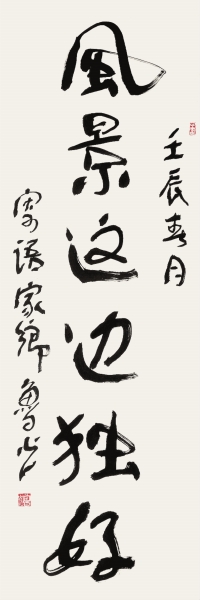 風景这边独好
壬辰春月
寄语家鄉魯山